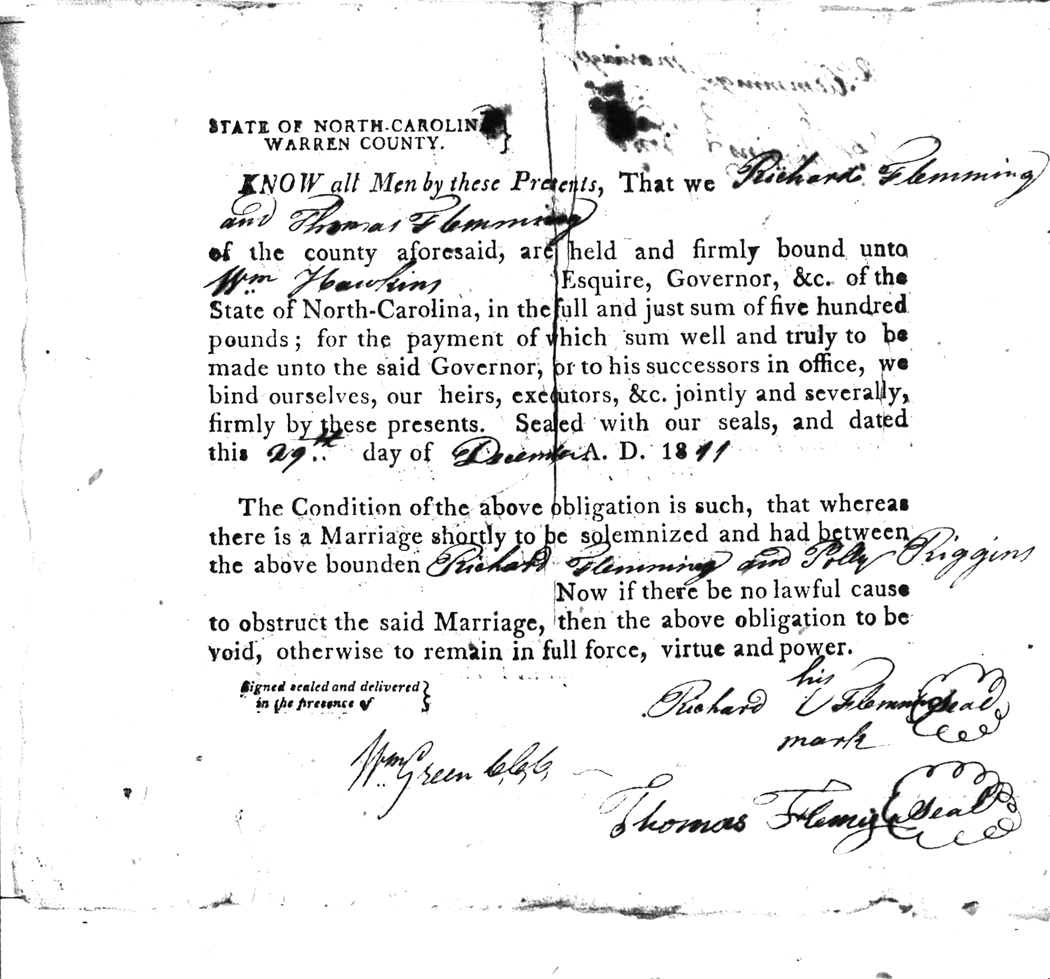 STATE OF NORTH-CAROLINA }
WARREN COUNTY.
KNOW all Men by these Presents, That we Richard Flemming
and Thomas Flemming
of the county aforesaid, are held and firmly bound unto
Wm Hawkins Esquire, Governor, &c. of the
State of North-Carolina, in the full and just sum of five hundred
pounds; for the payment of which sum well and truly to be
made unto the said Governor, or to his successors in office, we
bind ourselves, our heirs, executors, &c. jointly and severally,
firmly by these presents. Sealed with our seals, and dated
this 29th day of December A. D. 1811
The Condition of the above obligation is such, that whereas
there is a Marriage shortly to be solemnized and had between
the above bounden Richard Flemming and Polly Riggins
Now if there be no lawful cause
to obstruct the said Marriage, then the above obligation to be
void, otherwise to remain in full force, virtue and power.
Signed sealed and delivered }
in the presence of
his
Richard U Flemming Seal
mark
Wm Green C.C.C.
Thomas Fleming Seal